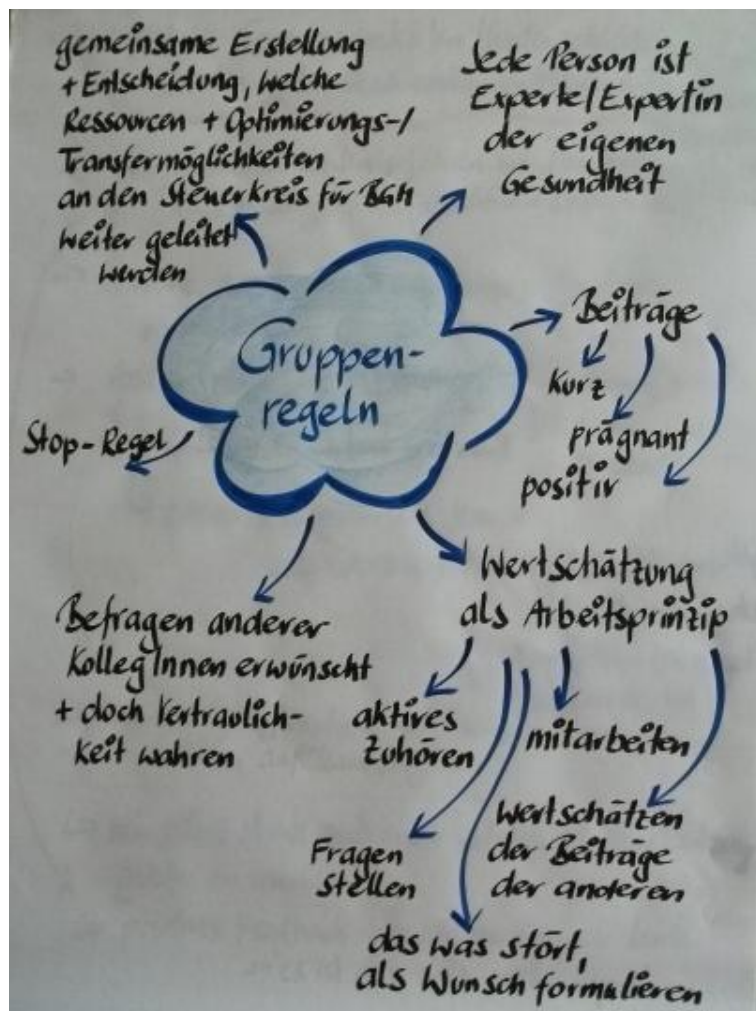 gemeinsame Erstellung
+ Entscheidung, welche
Ressourcen + Optimierungs-/
Transfermöglichkeiten
an den Steuerkreis für BGM
weiter geleitet
werden
Jede Person ist
Experte/Expertin
der eigenen
Gesundheit
Gruppen-
regeln
Beiträge
kurz
prägnant
positiv
Stop-Regel
Wertschätzung
als Arbeitsprinzip
Befragen anderer
KollegInnen erwünscht
+ doch Vertraulich-
keit wahren
aktives
Zuhören
mitarbeiten
Fragen
stellen
Wertschätzen
der Beiträge
der anderen
das was stört,
als Wunsch formulieren